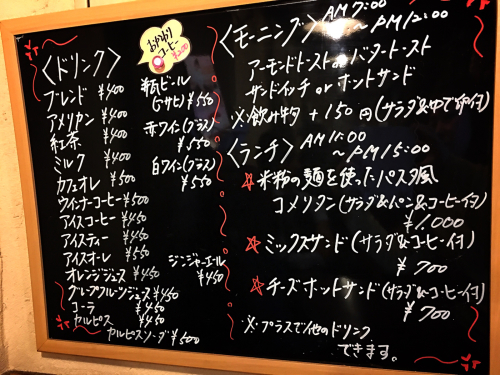 〈ドリンク〉
おかわり
コーヒー
¥200
ブレンド ¥400
アメリカン ¥400
紅茶 ¥400
ミルク ¥400
カフェオレ ¥500
ウィンナーコーヒー ¥500
アイスコーヒー ¥450
アイスティー ¥450
アイスオーレ ¥550
オレンジジュース ¥450
グレープフルーツジュース ¥450
コーラ ¥450
カルピス ¥450
カルピスソーダ ¥500
瓶ビール
(アサヒ) ¥550
赤ワイン(グラス)
¥550
白ワイン(グラス)
¥550
ジンジャーエール
¥450
〈モーニング〉 AM 7:00
～PM 12:00
アーモンドトースト or バタートースト
サンドイッチ or ホットサンド
※飲み物 + 150円(サラダ&ゆで卵付)
〈ランチ〉 AM 11:00
～PM 15:00
☆米粉の麺を使ったパスタ風
コメリタン(サラダ&パン&コーヒー付)
¥1,000
☆ミックスサンド(サラダ&コーヒー付)
¥700
☆チーズホットサンド(サラダ&コーヒー付)
¥700
※プラスで他のドリンク
できます。